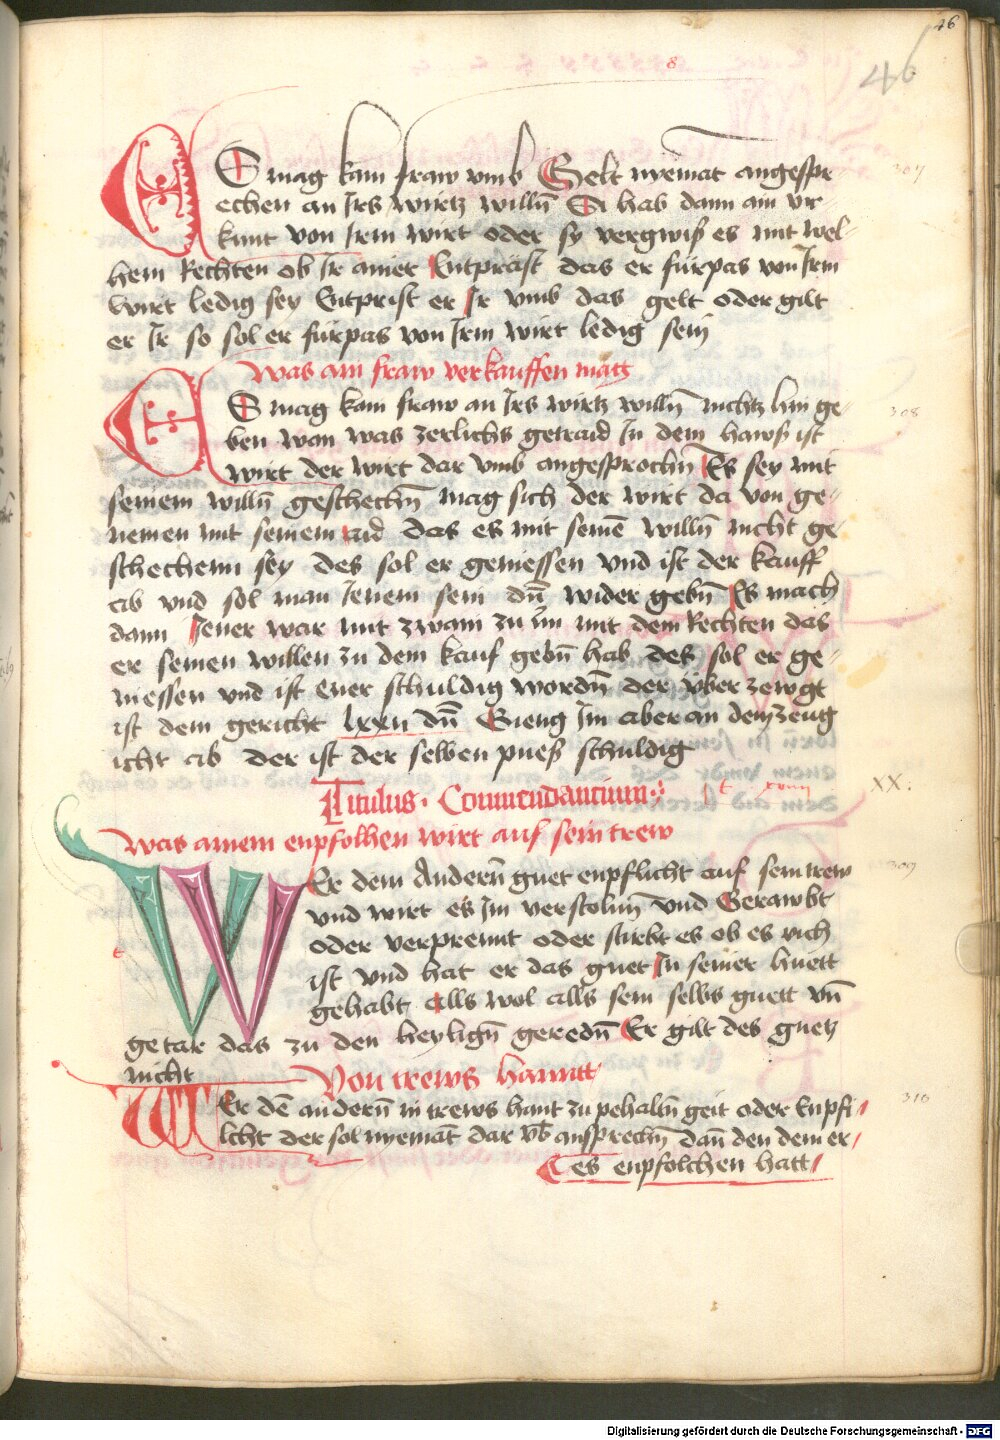 46
46
8
ES mag kain fraw vmb Gelt nyemāt angespr
echen an Irs wirtz willn̄ Si hab dann ain vr
kunt von Irm wirt oder sy vergwiß es mit wel-
hem Rechten ob Ir ainer Entpräst das er fürpas von Irm
wirt ledig sey Entprist er Ir vmb das gelt oder gilt
er Ir so sol er fürpas von Irm wirt ledig sein
Was ain fraw verkauffen mag
307
ES mag kain fraw an Irs wirtz willn̄ nichtz hin ge-
ben wan was zerlichs getraid In dem hawß ist
wirt der wirt dar vmb angesprochn̄ Es sey mit
seinem willn̄ geschechn̄ mag sich der wirt da von ge-
nemen mit seinem aid das es mit seinē willn̄ nicht ge
schechenn sey des sol er geniessen vnd ist der kauff
ab vnd sol man Ienem sein dn̄ wider gebn̄ Es mach
dann Jener war mit zwain zu Im mit dem Rechten das
er seinen willen zu dem kauf gebn̄ hab des sol er ge-
niessen vnd ist ener schuldig wordn̄ der vber zewgt
ist dem gericht lxxii dn̄ Gieng Im aber an dem zeug
icht ab der ist der selben pueß schuldig
308
Titulus. Commendancium
XX.
Was ainem enpfolhen wirt auf sein trew
WEr dem Andern̄ guet enpflicht auf sein trew
vnd wirt es Im verstoln̄ vnd Gerawbt
oder verprennt oder stirbt es ob es vich
ist vnd hat er das guet In seiner huett
gehabt alls wol alls sein selbs guett vn̄
getar das zu den heylign̄ geredn̄ Er gilt des guetz
nicht
309
Von trews hannt
WEr dē andern̄ in trews hant zu pehaltn̄ geit oder Enpfi
lcht der sol nyemāt dar vb ansprechn̄ dan̄ den dem er
es enpfolchen hatt
310
Digitalisierung gefördert durch die Deutsche Forschungsgemeinschaft - DFG